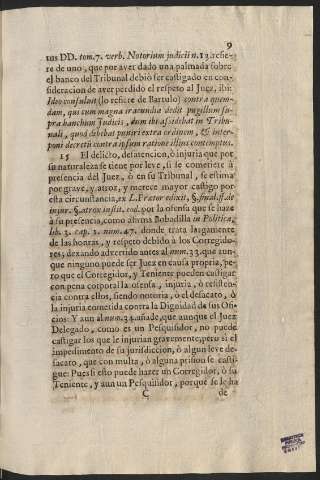 9
tus DD. tom. 7. verb. Notorium judicii n. 13. refie-
re de uno, que por aver dado una palmada sobre
el banco del Tribunal debió ser castigado en con-
sideracion de aver perdido el respeto al Juez, ibi:
Ideo consuluit (lo refiere de Bartulo) contra quem-
dam, qui cum magna iracundia dedit pugillum su-
pra banchum Judicis, dum ibi assidebat in Tribu-
nali, quod debebat puniri extra ordinem, & inter-
poni decretū contra ipsum ratione illius contemptus.
15 El delicto, desatencion, ò injuria que por
su naturaleza se tiene por leve, si se comete en
presencia del Juez, ò en su Tribunal, se estima
por grave, y atroz, y merece mayor castigo por
esta circunstancia, ex L. Prætor edixit, §. final. ff. de
injur. §. atrox instit. eod. por la ofensa que se haze
à su presencia, como afirma Bobadilla in Politica,
lib. 3. cap. 1. num. 47. donde trata largamente
de las honras, y respeto debido à los Corregido-
res; dexando advertido antes al num. 33. que aun-
que ninguno puede ser Juez en causa propria, pe-
ro que el Corregidor, y Teniente pueden castigar
con pena corporal la ofensa, injuria, ò resisten-
cia contra ellos, siendo notoria, ò el desacato, ò
la injuria cometida contra la Dignidad de sus Ofi-
cios: Y aun al num. 34. añade, que aunque el Juez
Delegado, como es un Pesquisidor, no puede
castigar los que le injurian gravemente, pero si el
impedimento de su jurisdiccion, ò algun leve de-
sacato, que con multa, ò alguna prision se casti-
gue: Pues si esto puede hazer un Corregidor, ò su
Teniente, y aun un Pesquisidor, porque se le ha
C de